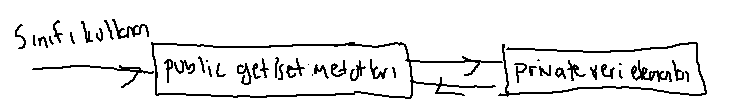 Sınıfı kullanan
public get/set metotları
private veri elemanları